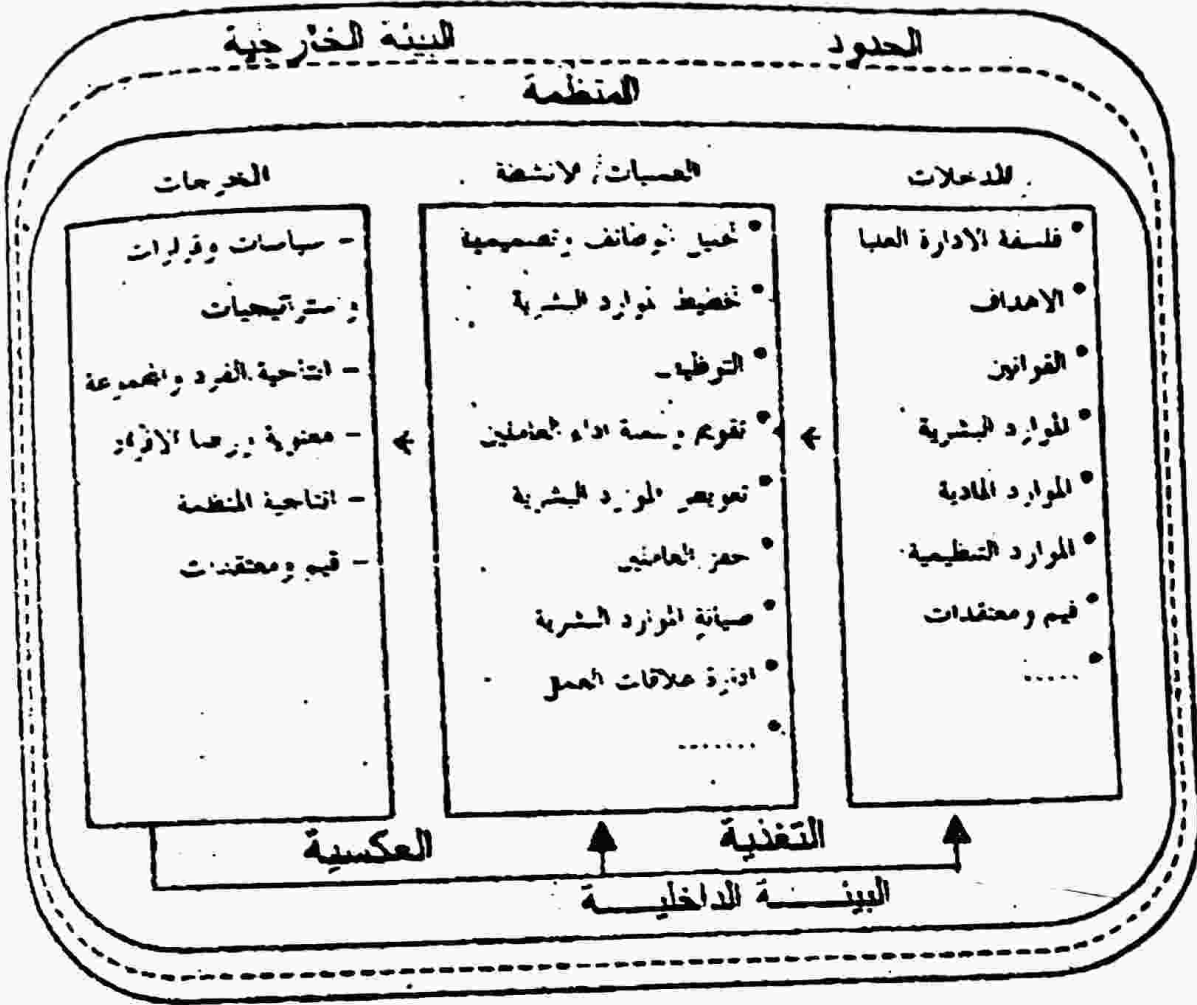 الحدود
البيئة الخارجية
المنظمة
المدخلات
• فلسفة الادارة العليا
• الاهداف
• القوانين
• الموارد البشرية
• الموارد المادية
• الموارد التنظيمية
• قيم ومعتقدات
• .....
العمليات/ الانشطة
• تحليل الوظائف وتصميمها
• تخطيط الموارد البشرية
• التوظيف
• تقويم اداء العاملين
• تعويض الموارد البشرية
• حفز العاملين
• صيانة الموارد البشرية
• ادارة علاقات العمل
• .......
المخرجات
- سياسات وقرارات
واستراتيجيات
- انتاجية الفرد والمجموعة
- معنوية ورضا الافراد
- انتاجية المنظمة
- قيم ومعتقدات
التغذية العكسية
البيئة الداخلية